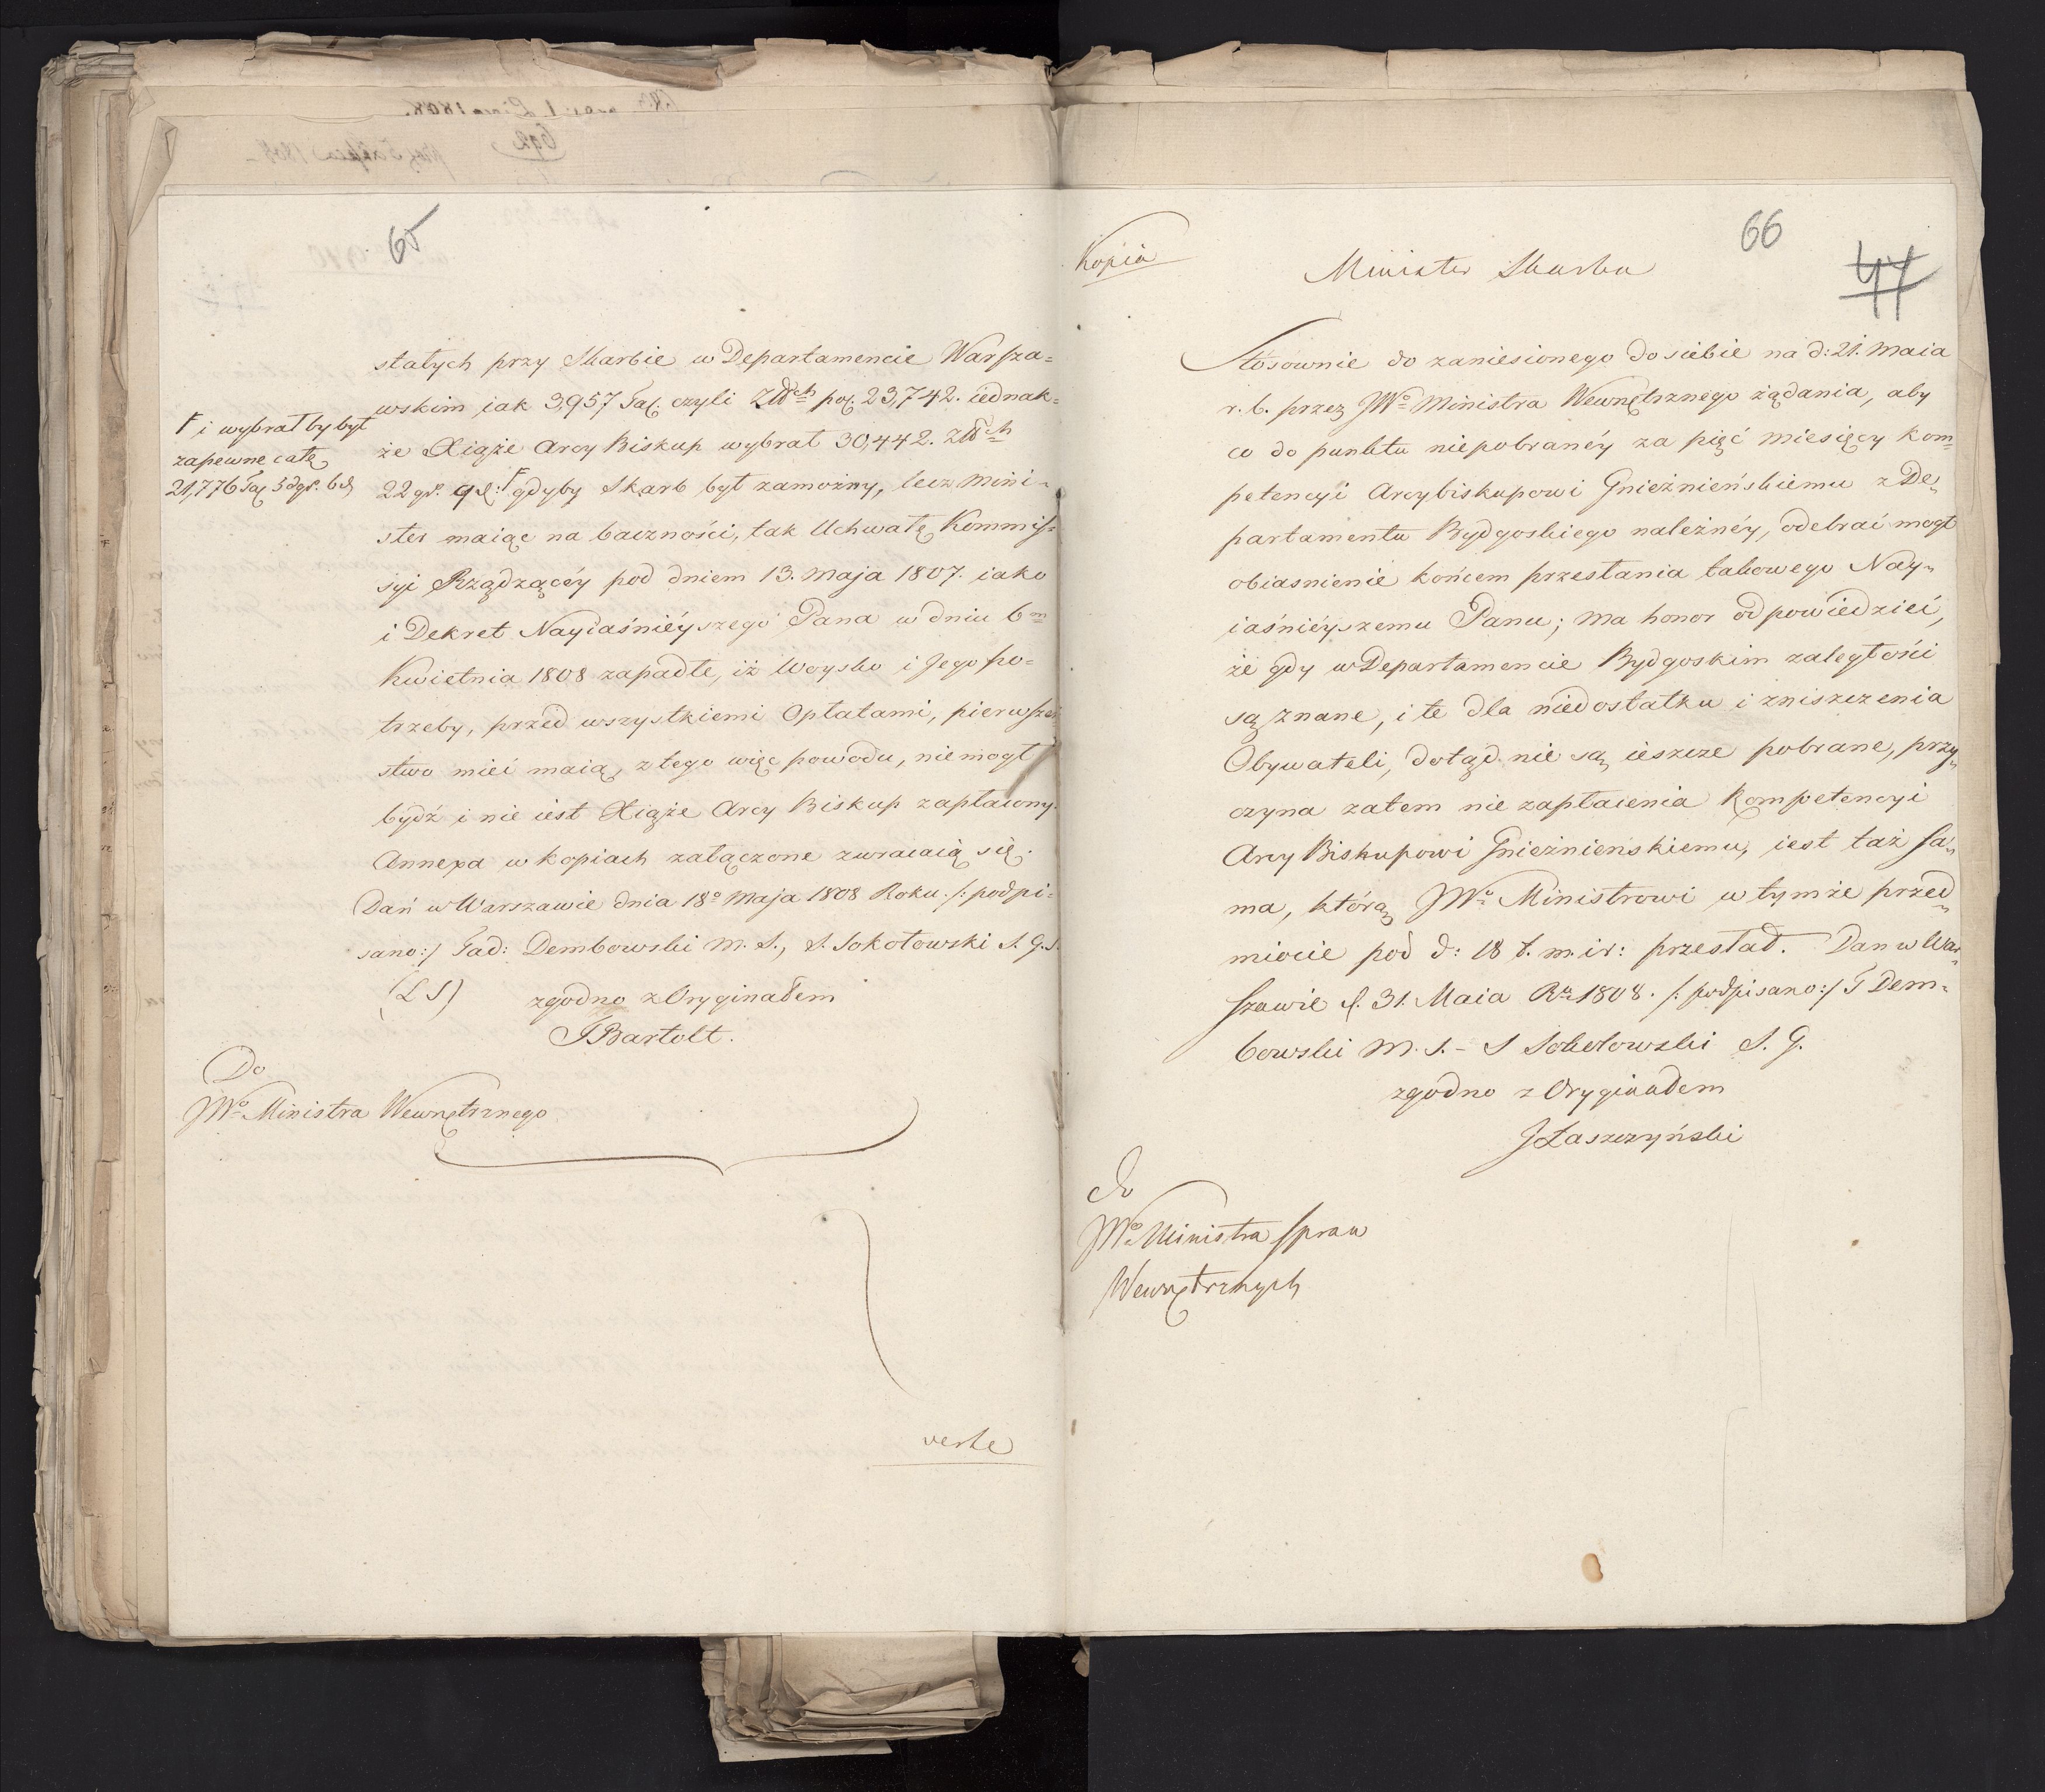 65
stałych przy Skarbie w Departamencie Warsza=
wskim iak 3,957 Tal. czyli Złłch pol. 23,742. iednak=
że Xiąże Arcy Biskup wybrał 30,442. Złłch
22 gr. 9 d: F gdyby Skarb był zamożny, lecz Mini=
ster maiąc na baczności, tak Uchwałę Kommis=
syi Rządzącéy pod dniem 13. Maja 1807. iako
i Dekret Nayiaśniéyszego Pana w dniu 6m
Kwietnia 1808 zapadłe, iż Woysko i Jego po=
trzeby, przed wszystkiemi Opłatami, pierwszeń
stwo mieć maią, z tego więc powodu, nie mogł
bydź i nie iest Xiąże Arcy Biskup zapłacony.
Annexa w kopiach załączone zwracaią się.
Dań w Warszawie dnia 18o Maja 1808 Roku. /: podpi=
sano:/ Tad: Dembowski M. S., S. Sokołowski S. G. S.
(L S) zgodno z Oryginałem
J Bartolt.
F i wybrał by był
zapewne całą
21,776 Tal 5 dgr. 6 d
Do
JWo Ministra Wewnętrznego
verte
66
47
Kopia
Minister Skarbu
Stosownie do zaniesionego do siebie na d: 21. Maia
r. b. przez JWo Ministra Wewnętrznego żądania, aby
co do punktu niepobranéy za pięć miesięcy kom=
petencyi Arcybiskupowi Gnieźnieńskiemu z De=
partamentu Bydgoskiego należnéy, odebrać mogł
obiasnienie końcem przesłania takowego Nay=
iaśniéyszemu Panu; ma honor odpowiedzieć,
że gdy w Departamencie Bydgoskim zaległości
są znane, i te dla niedostatku i zniszczenia
Obywateli, dotąd nie są ieszcze pobrane, przy=
czyna zatem nie zapłacenia kompetencyi
Arcy Biskupowi Gnieźnienskiemu, iest taż sa=
ma, którą JWo Ministrowi w tymże przed=
miocie pod d: 18 t. m. i r: przesłał. Dan w War=
szawie d. 31. Maia Ru 1808. /: podpisano:/ T Dem=
bowski M. S. - S Sokołowski S. G.
zgodno z Oryginałem
J Łaszczyński
do
JWo Ministra Spraw
Wewnętrznych